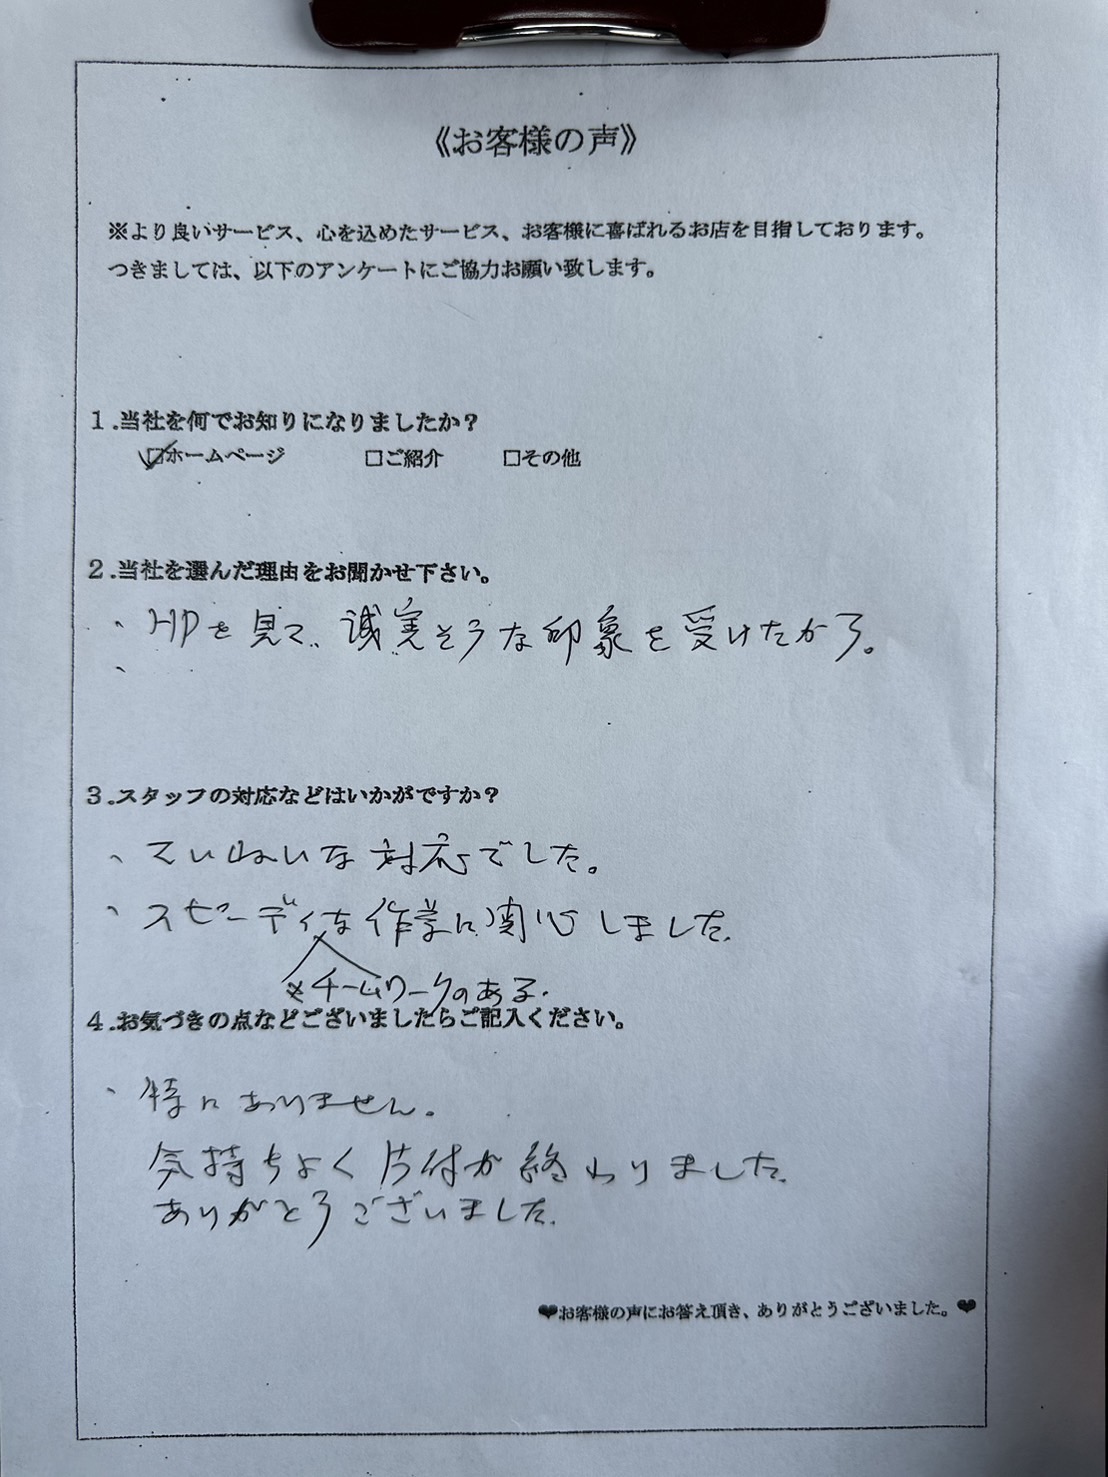 《お客様の声》
※より良いサービス、心を込めたサービス、お客様に喜ばれるお店を目指しております。
つきましては、以下のアンケートにご協力お願い致します。
１.当社を何でお知りになりましたか？
☑ホームページ □ご紹介 □その他
２.当社を選んだ理由をお聞かせ下さい。
、HPを見て、誠実そうな印象を受けたから。
、
３.スタッフの対応などはいかがですか？
、ていねいな対応でした。
、スピーディな作業に関心しました。
※チームワークのある.
４.お気づきの点などございましたらご記入ください。
、特にありません。
気持ちよく片付が終わりました。
ありがとうございました。
❤お客様の声にお答え頂き、ありがとうございました。❤